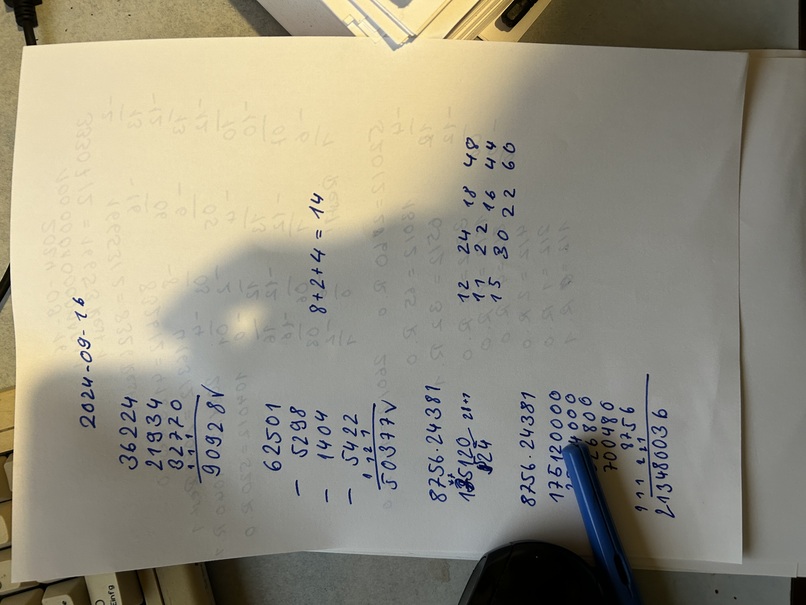 2024-09-16
36224
21934
32770
1 1 1
90928 V
62501
- 5298
- 1404
- 5422
1 12 1
50377 V
8+2+4 = 14
8756·24381
12 24 18 48
11 22 16 44
15 30 22 60
8756·24381
175120000
4000
26800
700480
8756
1 1 1 2 21
213480036
Einfg